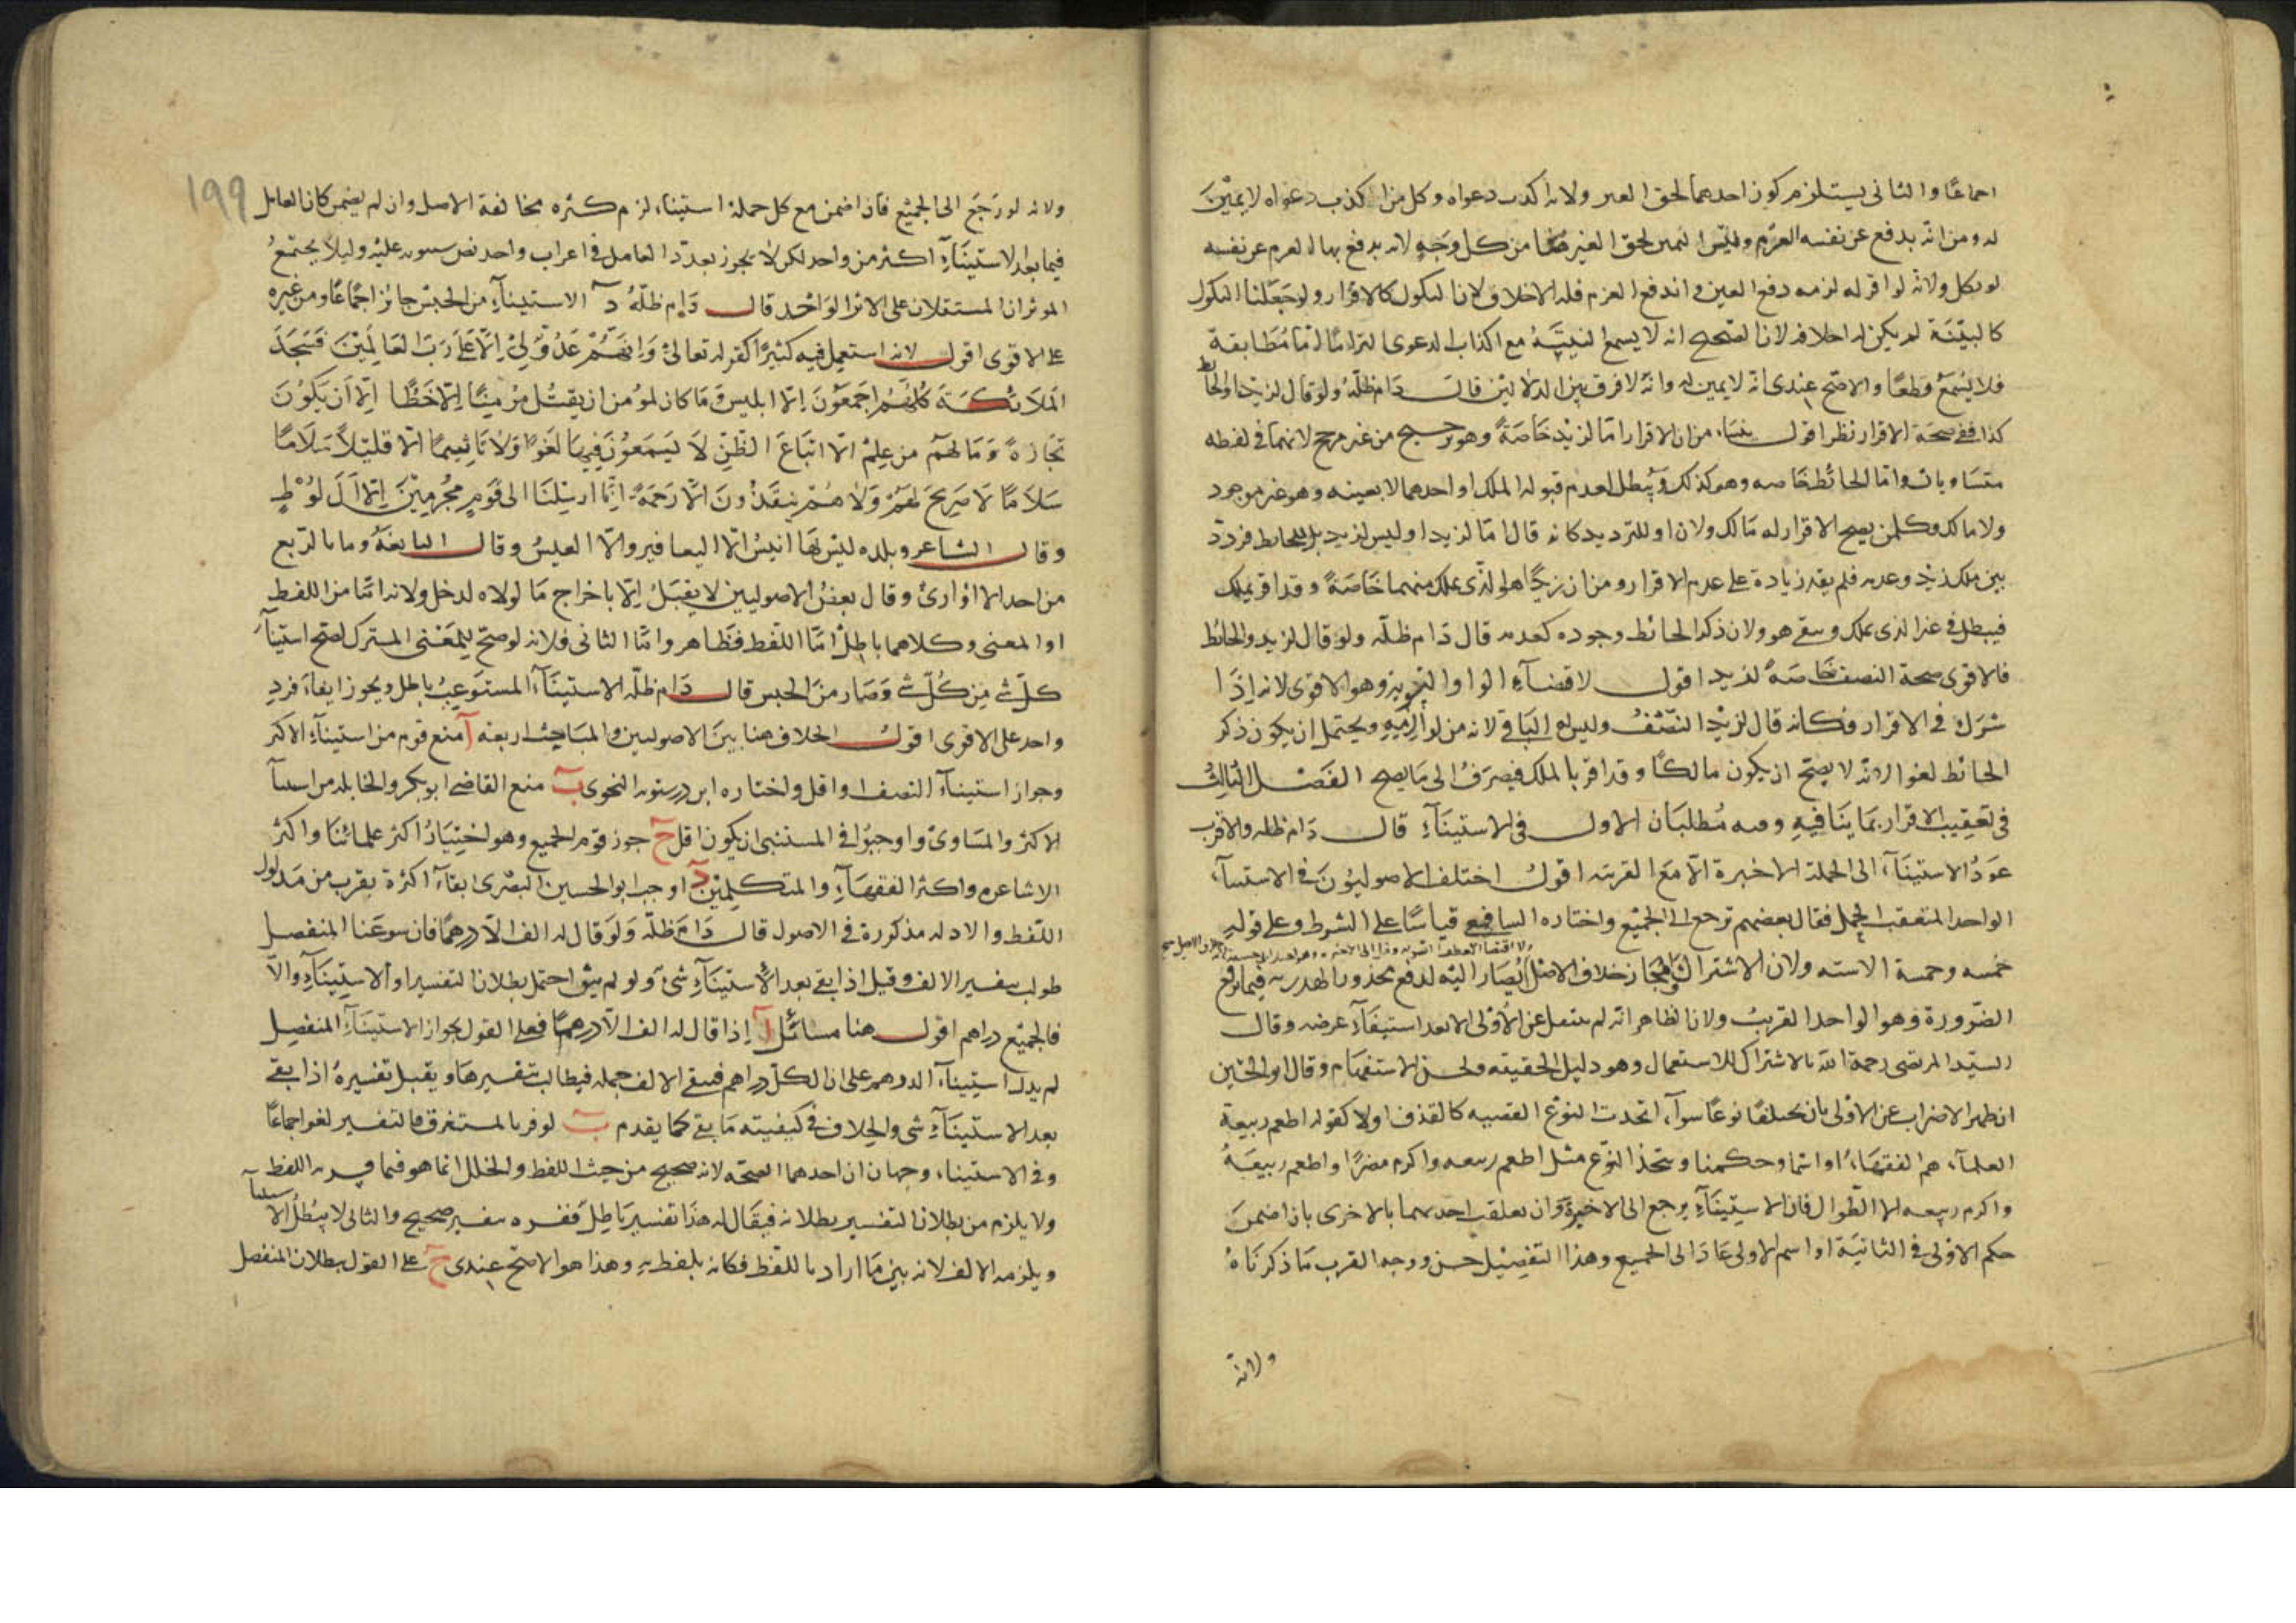 اجماعًا والثانى يستلزم كون احدهما لحق الغير ولانه اكذب دعواه وكل من اكذب دعواه لا يمين
له ومن انه يدفع عن نفسه الغرم وليس اليمين لحق الغير من كل وجه لانه يدفع بها الغرم عن نفسه
لو نكل ولانه لو اقر له لزمه دفع العين واندفع الغرم فله الاحلاف لانا النكول كالاقرار ولو جعلنا النكول
كالبينة لم يكن له احلافه لان الصحيح انه لا يسمع البينة مع اكذاب الدعوى التزامًا اما مطابقة
فلا يسمع قطعًا والاصح عندى انه لا يمين له وانه لا فرق بين الدلالتين قال دام ظله ولو قال لزيد او الحائط
كذا ففى صحة الاقرار نظر اقول ينشا من ان الاقرار اما لزيد خاصة وهو ترجيح من غير مرجح لانهما فى لفظه
متساويان واما الحائط خاصه وهو كذلك ويبطل لعدم قبوله الملك او احدهما لا بعينه وهو غير موجود
ولا مالك وكلمن يصح الاقرار له مالك ولان او للترديد كانه قال اما لزيد او ليس لزيد بل للحائط فردد
بين ملك زيد وعدمه فلم يفد زيادة على عدم الاقرار ومن ان زيدًا هو الذى يملك منهما خاصة وقد اقر بملك
فيبطل فى غير الذى يملك وبقى هو ولان ذكر الحائط وجوده كعدمه قال دام ظله ولو قال لزيد والحائط
فالاقوى صحة النصف خاصة لزيد اقول لاقتضاء الواو التسوية وهو الاقوى لانه اذا
شرك فى الاقرار فكانه قال لزيد النصف وليس له الباقى لانه من لوازمه ويحتمل ان يكون ذكر
الحائط لغوا لانه لا يصح ان يكون مالكًا وقد اقر بالملك فيصرف الى ما يصح الفصل الثالث
فى تعقيب الاقرار بما ينافيه وفيه مطلبان الاول فى الاستيناء قال دام ظله والاقرب
عود الاستيناء الى الجملة الاخيرة الا مع القرينه اقول اختلف الاصوليون فى الاستيناء
الواحد المتعقب لجمل فقال بعضهم ترجع الى الجميع واختاره الشافعى قياسًا على الشرط وعلى قوله
خمسه وخمسة الا سته ولان الاشتراك والمجاز خلاف الاصل يصار اليه لدفع محذور الهذرية فيما يرفع
الضرورة وهو الواحد القريب ولان الظاهر انه لم ينتقل عن الاولى الا بعد استيفاء غرضه وقال
السيد المرتضى رحمة الله بالاشتراك للاستعمال وهو دليل الحقيقه ولحسن الاستفهام وقال ابو الحسين
ان ظهر الاضراب عن الاولى بان يختلفا نوعًا سواء اتحدت النوع القصيه كالقذف او لا كقوله اطعم ربيعة
العلماء هم الفقهاء او اسما وحكمنا ويتحد النوع مثل اطعم ربيعه واكرم مضرًا واطعم ربيعة
واكرم ربيعه الا الطوال فان الاستيناء يرجع الى الاخيرة وان تعلقت احديهما بالاخرى بان اضمن
حكم الاولى فى الثانية او اسم الاولى عاد الى الجميع وهذا التفصيل حسن ووجه القرب ما ذكرناه
ولانه
١٩٩
ولانه لو رجع الى الجميع فان اضمن مع كل جملة استيناء لزم كثره مخالفة الاصل وان لم يضمن كان العامل
فيما بعد الاستيناء اكثر من واحد لكن لا يجوز تعدد العامل فى اعراب واحد نص سيبويه عليه وليلا يجتمع
الموثران المستقلان على الاثر الواحد قال دام ظله د الاستيناء من الجنس جائز اجماعًا ومن غيره
على الاقوى اقول لانه استعمل فيه كثيرًا كقوله تعالى وانهم عدو لى الا رب العالمين فسجد
الملائكة كلهم اجمعون الا ابليس وما كان لمؤمن ان يقتل مؤمنًا الا خطًا الا ان يكون
تجارة وما لهم من علم الا اتباع الظن لا يسمعون فيها لغوًا ولا تاثيمًا الا قليلًا سلامًا
سلامًا لا صريخ لهم ولا هم ينقذون الا رحمة انا ارسلنا الى قوم مجرمين الا آل لوط
وقال الشاعر وبلده ليس بها انيس الا اليعافير والا العيس وقال النابغة وما بالربع
من احد الا اوارى وقال بعض الاصوليين لا يقبل الا باخراج ما لولاه لدخل ولانه اما من اللفظ
او المعنى وكلاهما باطل اما اللفظ فظاهر واما الثانى فلانه لو صح للمعنى المشترك لصح استيناء
كل شى من كل شى وصار من الجنس قال دام ظله الاستيناء المستوعب باطل ويجوز ابقاء فرد
واحد على الاقوى اقول الخلاف هنا بين الاصوليين والمباحث اربعه آ منع قوم من استيناء الاكثر
وجواز استيناء النصف او اقل واختاره ابن درستويه النحوى ب منع القاضى ابو بكر والحنابله من استيناء
الاكثر والمساوى واوجبوا فى المستثنى ان يكون اقل ج جوز قوم الجميع وهو اختيار اكثر علمائنا واكثر
الاشاعره واكثر الفقهاء والمتكلمين د اوجب ابو الحسين البصرى ابقاء اكثرة بقرب من مدلول
اللفظ والادله مذكورة فى الاصول قال دام ظله ولو قال له الف الا درهمًا فان سوغنا المنفصل
طولب بتفسير الالف وقبل اذا بقى بعد الاستيناء شى ولو لم يبق احتمل بطلان التفسير او الاستيناء والا
فالجميع دراهم اقول هنا مسائل آ اذا قال له الف الا درهمًا فعلى القول بجواز الاستيناء المنفصل
لم يدل استيناء الدرهم على ان الكل دراهم فيبقى الالف جمله فيطالب بتفسيرها ويقبل تفسيره اذا بقى
بعد الاستيناء شى والخلاف فى كيفيته ما بقى كما يقدم ب لو فسر بالمستغرق فالتفسير لغو اجماعًا
وفى الاستيناء وجهان احدهما الصحه لانه صحيح من حيث اللفظ والخلل انما هو فيما فسر به اللفظ
ولا يلزم من بطلان التفسير بطلانه فيقال له هذا تفسير باطل ففسره بتفسير صحيح والثانى لا يبطل الاستيناء
ويلزمه الالف لانه بين ما اراد باللفظ فكانه تلفظ به وهذا هو الاصح عندى ج على القول ببطلان المنفصل